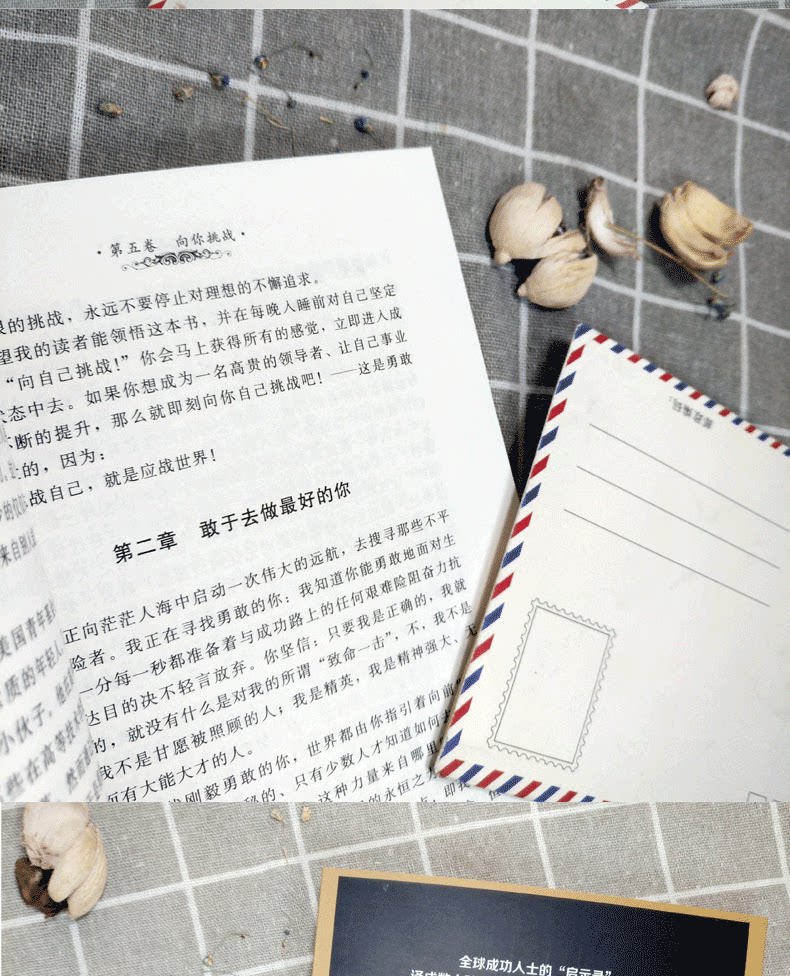 ·第五卷 向你挑战·
的挑战，永远不要停止对理想的不懈追求。
望我的读者能领悟这本书，并在每晚入睡前对自己坚定
“向自己挑战！”你会马上获得所有的感觉，立即进入成
状态中去。如果你想成为一名高贵的领导者、让自己事业
断的提升，那么就即刻向你自己挑战吧！——这是勇敢
的，因为：
战自己，就是应战世界！
第二章 敢于去做最好的你
正向茫茫人海中启动一次伟大的远航，去搜寻那些不平
险者。我正在寻找勇敢的你：我知道你能勇敢地面对生
一分每一秒都准备着与成功路上的任何艰难险阻奋力抗
达目的决不轻言放弃。你坚信：只要我是正确的，我就
的，就没有什么是对我的所谓“致命一击”，不，我不是
我不是甘愿被照顾的人；我是精英，我是精神强大、无
有大能大才的人。
刚毅勇敢的你，世界都由你指引着向前
秘的、只有少数人才知道如何去
这种力量来自哪里
的永恒之
来自别
美国青年
质的年轻人
小伙子，他
些在高等技术
邮政编码：
全球成功人士的“启示录”